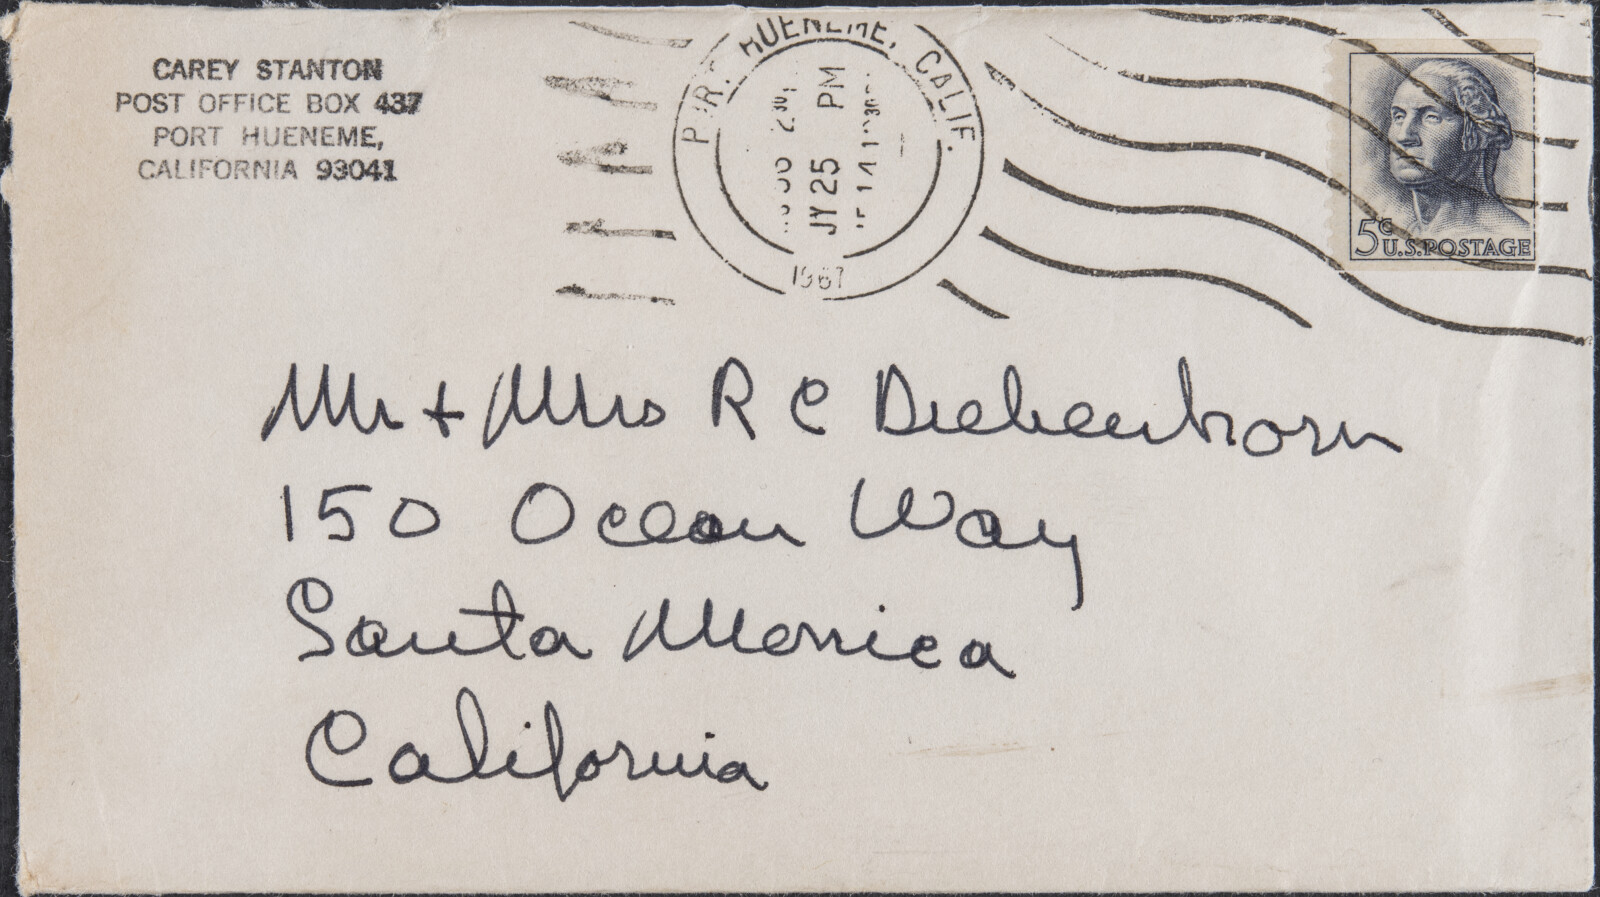 CAREY STANTON
POST OFFICE BOX 437
PORT HUENEME,
CALIFORNIA 93041
PORT HUENEME, CALIF.
PM
JY 25
1967
5¢ U.S. POSTAGE
Mr + Mrs R C Diebenkorn
150 Ocean Way
Santa Monica
California